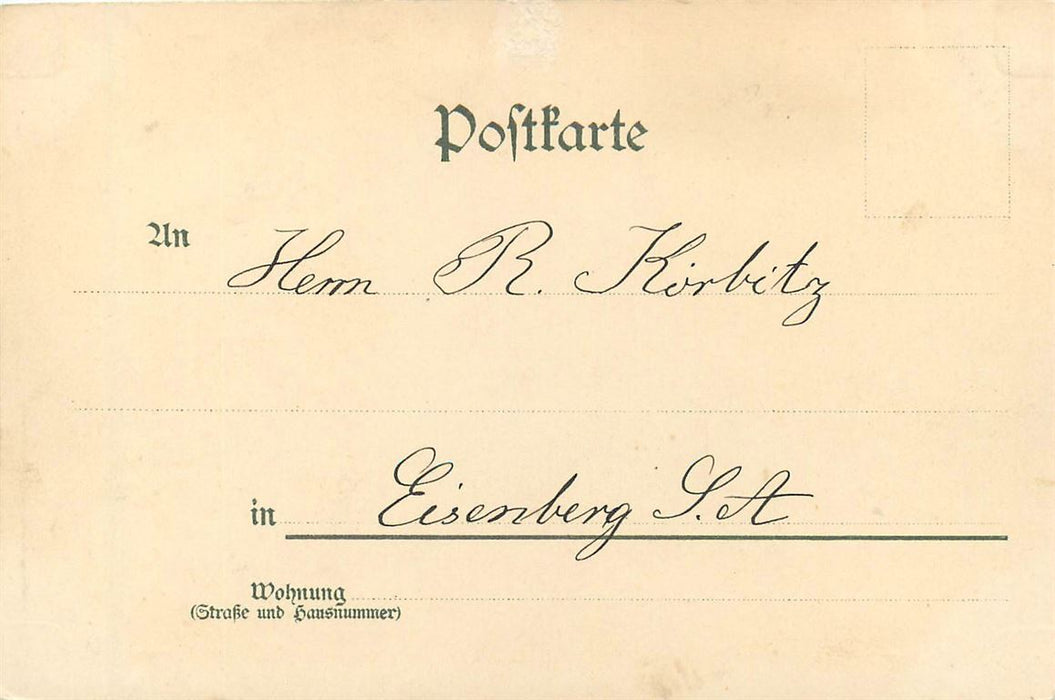 Postkarte
An Herrn R. Körbitz
in Eisenberg S. A
Wohnung
(Straße und Hausnummer)